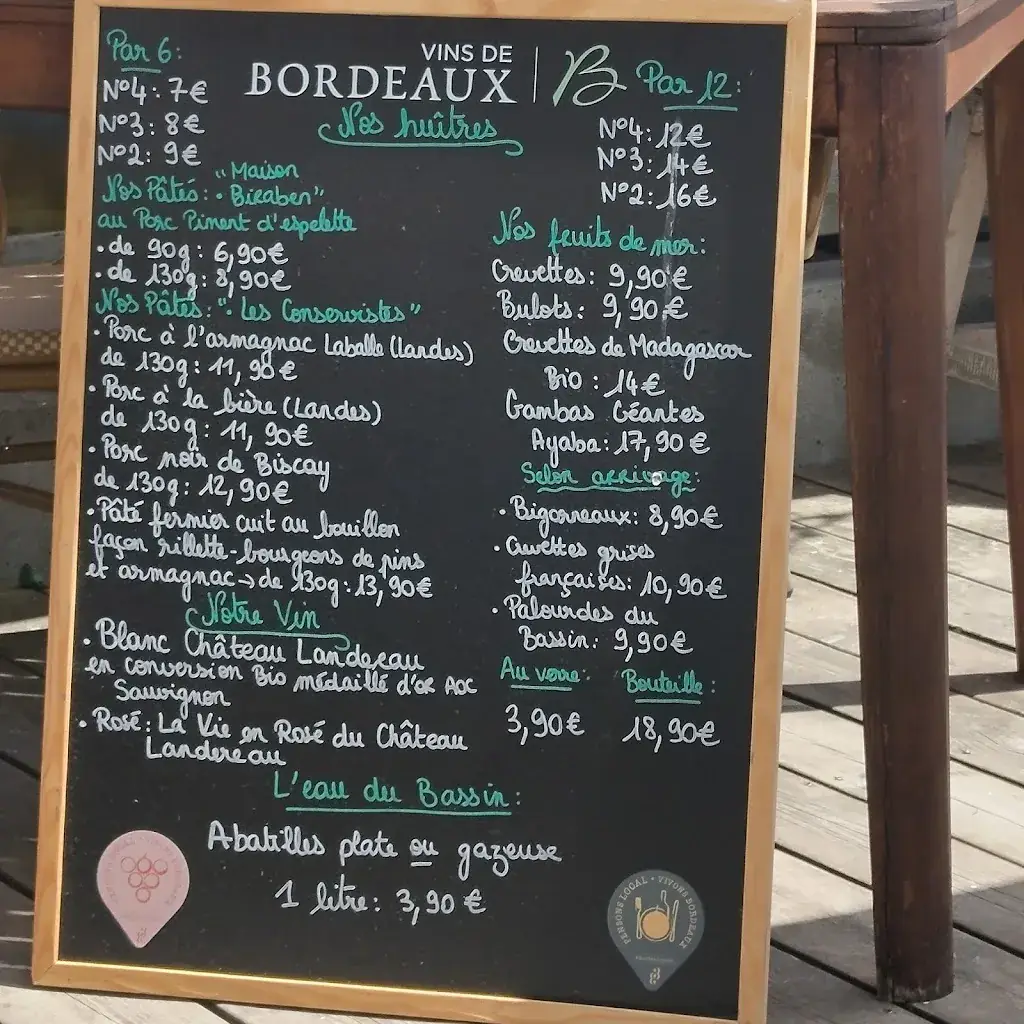 VINS DE
BORDEAUX B
Nos huîtres
Par 6:
N°4: 7€
N°3: 8€
N°2: 9€
Par 12:
N°4: 12€
N°3: 14€
N°2: 16€
"Maison
Nos Pâtés: • Biraben"
au Porc Piment d'espelette
• de 90g: 6,90€
• de 130g: 8,90€
Nos Pâtés: "• Les Conservistes"
• Porc à l'armagnac Laballe (Landes)
de 130g: 11,90€
• Porc à la bière (Landes)
de 130g: 11,90€
• Porc noir de Biscay
de 130g: 12,90€
• Pâté fermier cuit au bouillon
façon rillette-bourgeons de pins
et armagnac → de 130g: 13,90€
Nos fruits de mer:
Crevettes: 9,90€
Bulots: 9,90€
Crevettes de Madagascar
Bio: 14€
Gambas Géantes
Ayaba: 17,90€
Selon arrivage:
• Bigorneaux: 8,90€
• Crevettes grises
françaises: 10,90€
• Palourdes du
Bassin: 9,90€
Notre Vin
• Blanc Château Landereau
en conversion Bio médaillé d'or AOC
Sauvignon
• Rosé: La Vie en Rosé du Château
Landereau
Au verre: Bouteille:
3,90€ 18,90€
L'eau du Bassin:
Abatilles plate ou gazeuse
1 litre: 3,90€
PENSONS LOCAL • VIVONS BORDEAUX